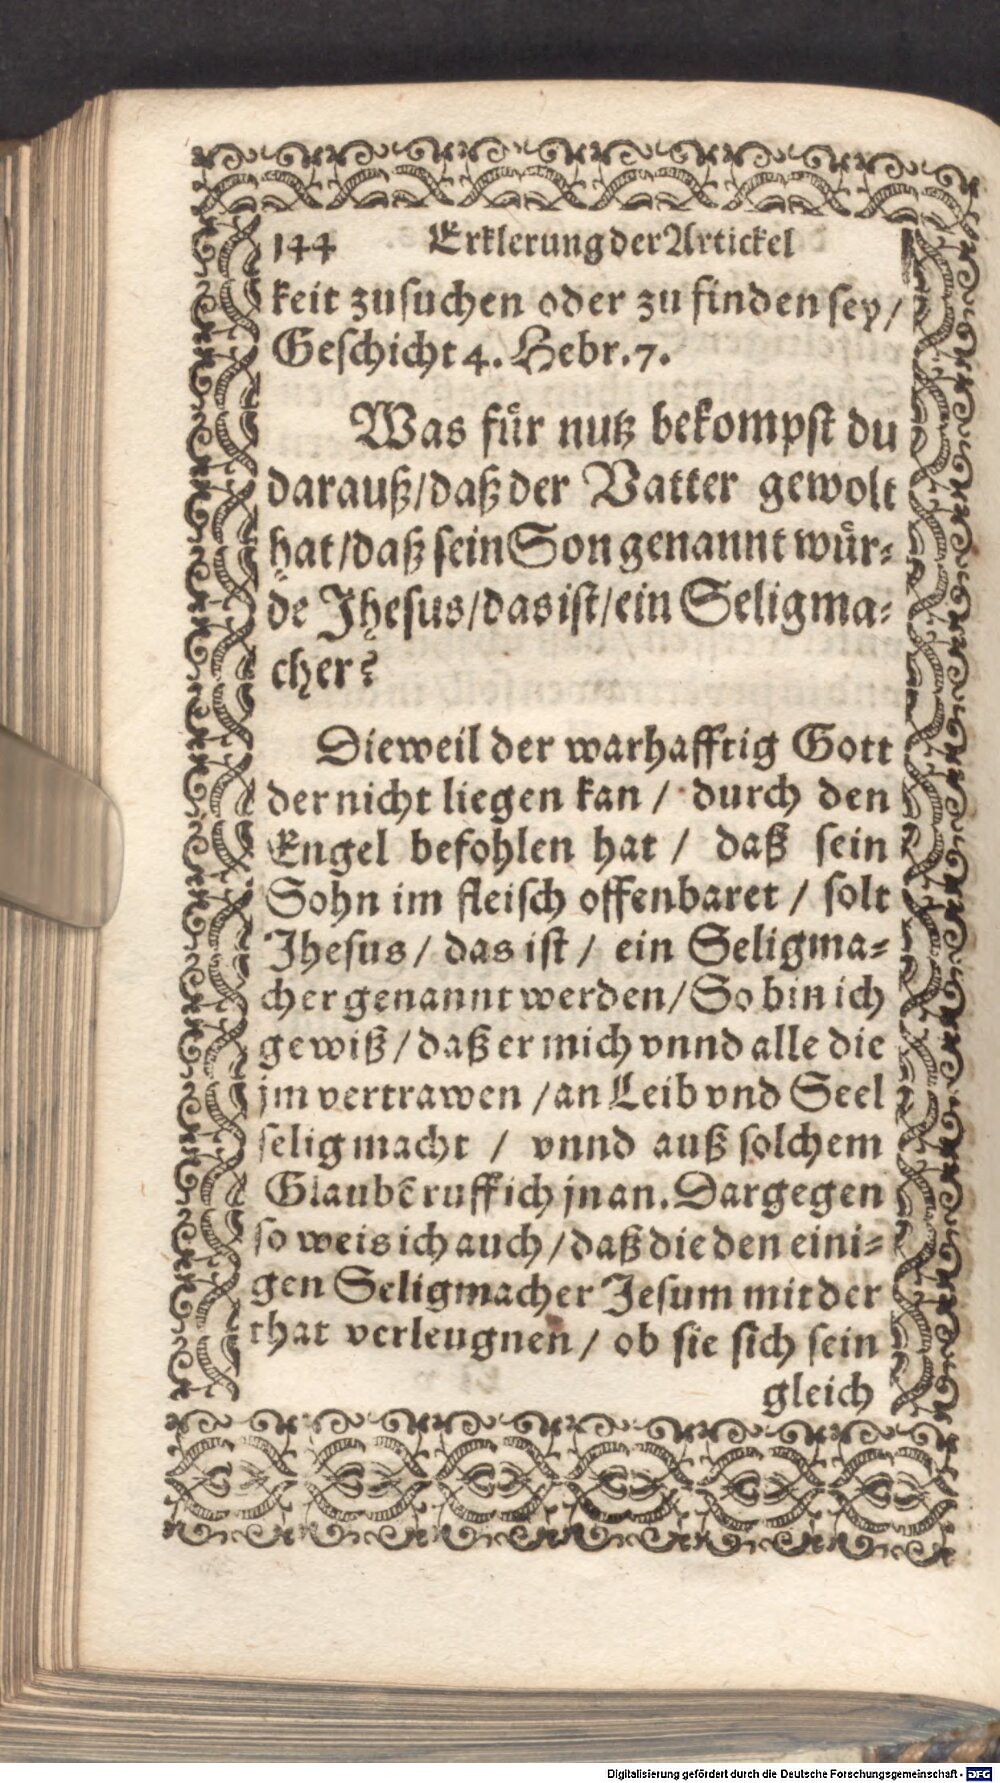 144 Erklerung der Artickel
keit zusuchen oder zu finden sey/
Geschicht 4. Hebr. 7.
Was fuͤr nutz bekompst du
darauß/daß der Vatter gewolt
hat/daß sein Son genannt wuͤr⸗
de Jhesus/das ist/ein Seligma⸗
cher?
Dieweil der warhafftig Gott
der nicht liegen kan / durch den
Engel befohlen hat / daß sein
Sohn im fleisch offenbaret / solt
Jhesus / das ist / ein Seligma⸗
cher genannt werden/So bin ich
gewiß/daß er mich vnnd alle die
jm vertrawen /an Leib vnd Seel
selig macht / vnnd auß solchem
Glaubẽ ruff ich jn an. Dargegen
so weis ich auch/daß die den eini⸗
gen Seligmacher Jesum mit der
that verleugnen / ob sie sich sein
gleich
Digitalisierung gefördert durch die Deutsche Forschungsgemeinschaft - DFG